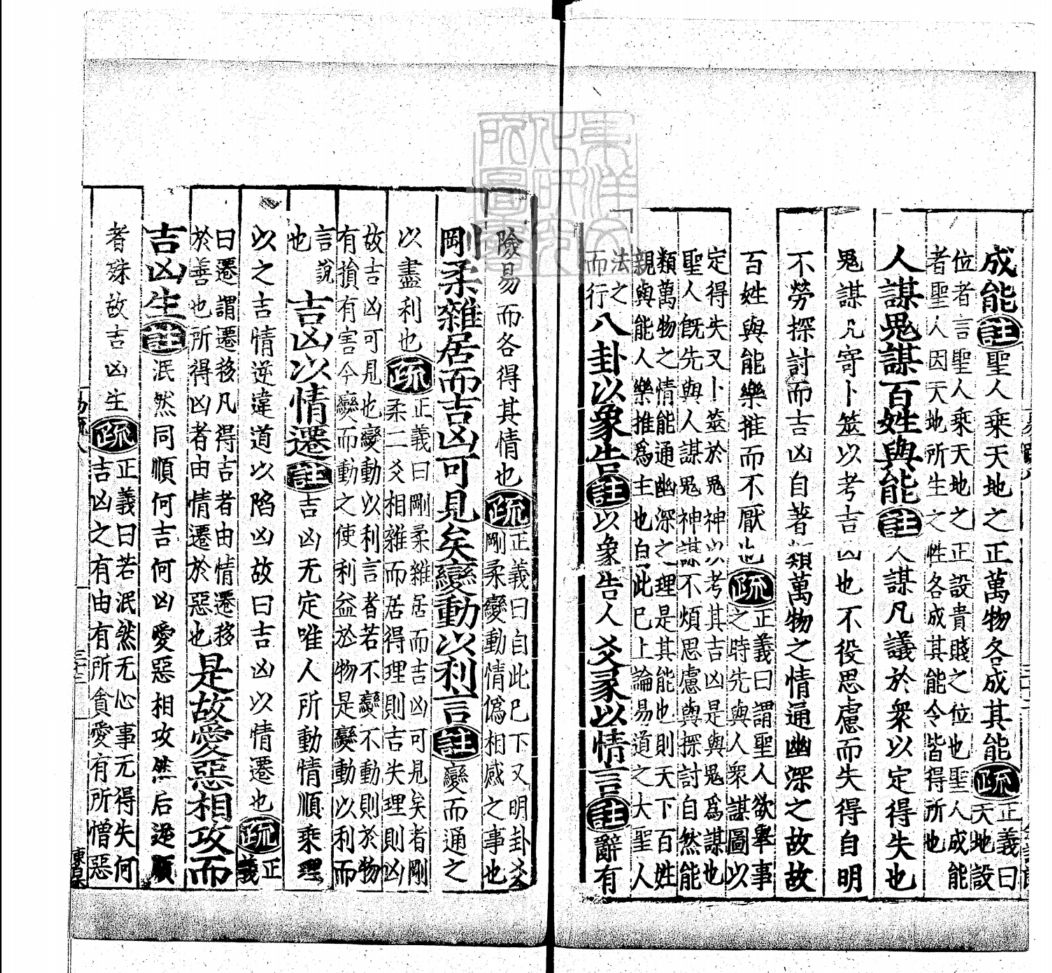 成能註聖人乘天地之正萬物各成其能疏正義曰天地設
位者言聖人乘天地之正設貴賤之位也聖人成能
者聖人因天地所生之性各成其能令皆得所也
人謀鬼謀百姓與能註人謀凡議於衆以定得失也
鬼謀凡寄卜筮以考吉凶也不役思慮而失得自明
不勞探討而吉凶自著類萬物之情通幽深之故故
百姓與能樂推而不厭也疏正義曰謂聖人欲舉事之時先與人衆謀圖以
定得失又卜筮於鬼神以考其吉凶是與鬼爲謀也
聖人既先與人謀鬼神謀不煩思慮與探討自然能
類萬物之情能通幽深之理是其能也則天下百姓
親與能人樂推爲主也自此已上論易道之大聖人
法之而行八卦以象告註以象告人爻彖以情言註辭有
險易而各得其情也疏正義曰自此已下又明卦爻剛柔變動情僞相感之事也
剛柔雜居而吉凶可見矣變動以利言註變而通之
以盡利也疏正義曰剛柔雜居而吉凶可見矣者剛柔二爻相雜而居得理則吉失理則凶
故吉凶可見也變動以利言者若不變不動則於物
有損有害今變而動之使利益於物是變動以利而
言說也吉凶以情遷註吉凶无定唯人所動情順乘理
以之吉情逆違道以陷凶故曰吉凶以情遷也疏正義
曰遷謂遷移凡得吉者由情遷移
於善也所得凶者由情遷於惡也是故愛惡相攻而
吉凶生註泯然同順何吉何凶愛惡相攻然后逆順
者殊故吉凶生疏正義曰若泯然无心事无得失何吉凶之有由有所貪愛有所憎惡